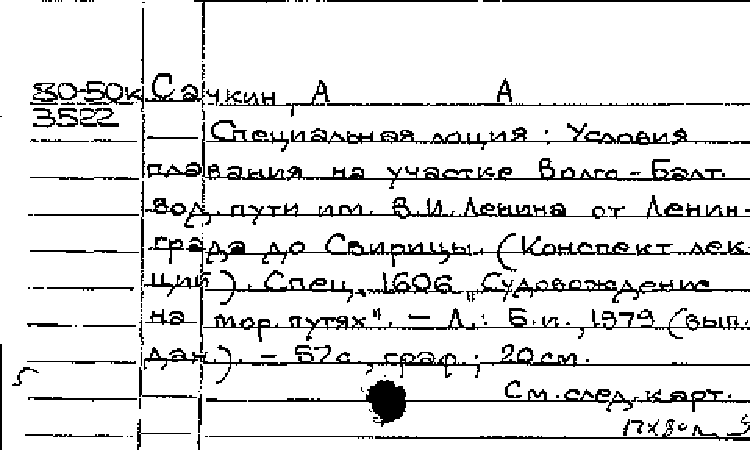 80-50к Сачкин, А А
3522
Специальная лоция: Условия
плавания на участке Волго-Балт.
вод. пути им. В.И. Ленина от Ленин-
града до Свирицы. (Конспект лек-
ций). Спец. 1606 "Судовождение
на мор. путях". — Л.: Б.и., 1979 (вып.
дан.). — 57с., граф.; 20 см.
См. след. карт.